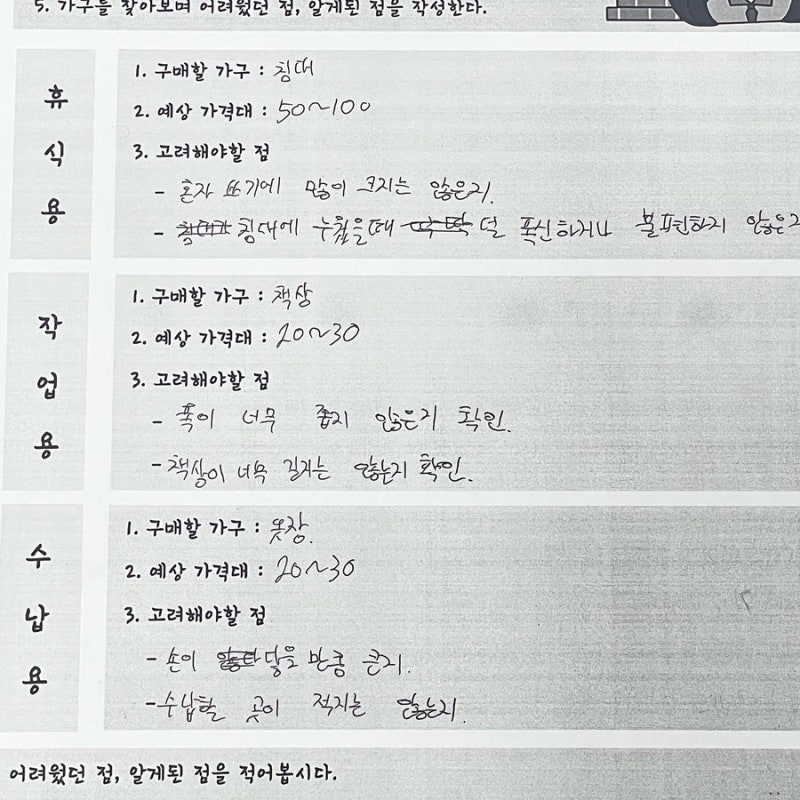 5. 가구를 찾아보며 어려웠던 점, 알게된 점을 작성한다.
휴식용
1. 구매할 가구 : 침대
2. 예상 가격대 : 50~100
3. 고려해야할 점
- 혼자 쓰기에 많이 크지는 않은지.
- 침대에 누웠을때 덜 푹신하거나 불편하지 않은지
작업용
1. 구매할 가구 : 책상
2. 예상 가격대 : 20~30
3. 고려해야할 점
- 폭이 너무 좁지 않은지 확인.
- 책상이 너무 길지는 않는지 확인.
수납용
1. 구매할 가구 : 옷장.
2. 예상 가격대 : 20~30
3. 고려해야할 점
- 손이 닿을 만큼 큰지.
- 수납할 곳이 적지는 않는지.
어려웠던 점, 알게된 점을 적어봅시다.